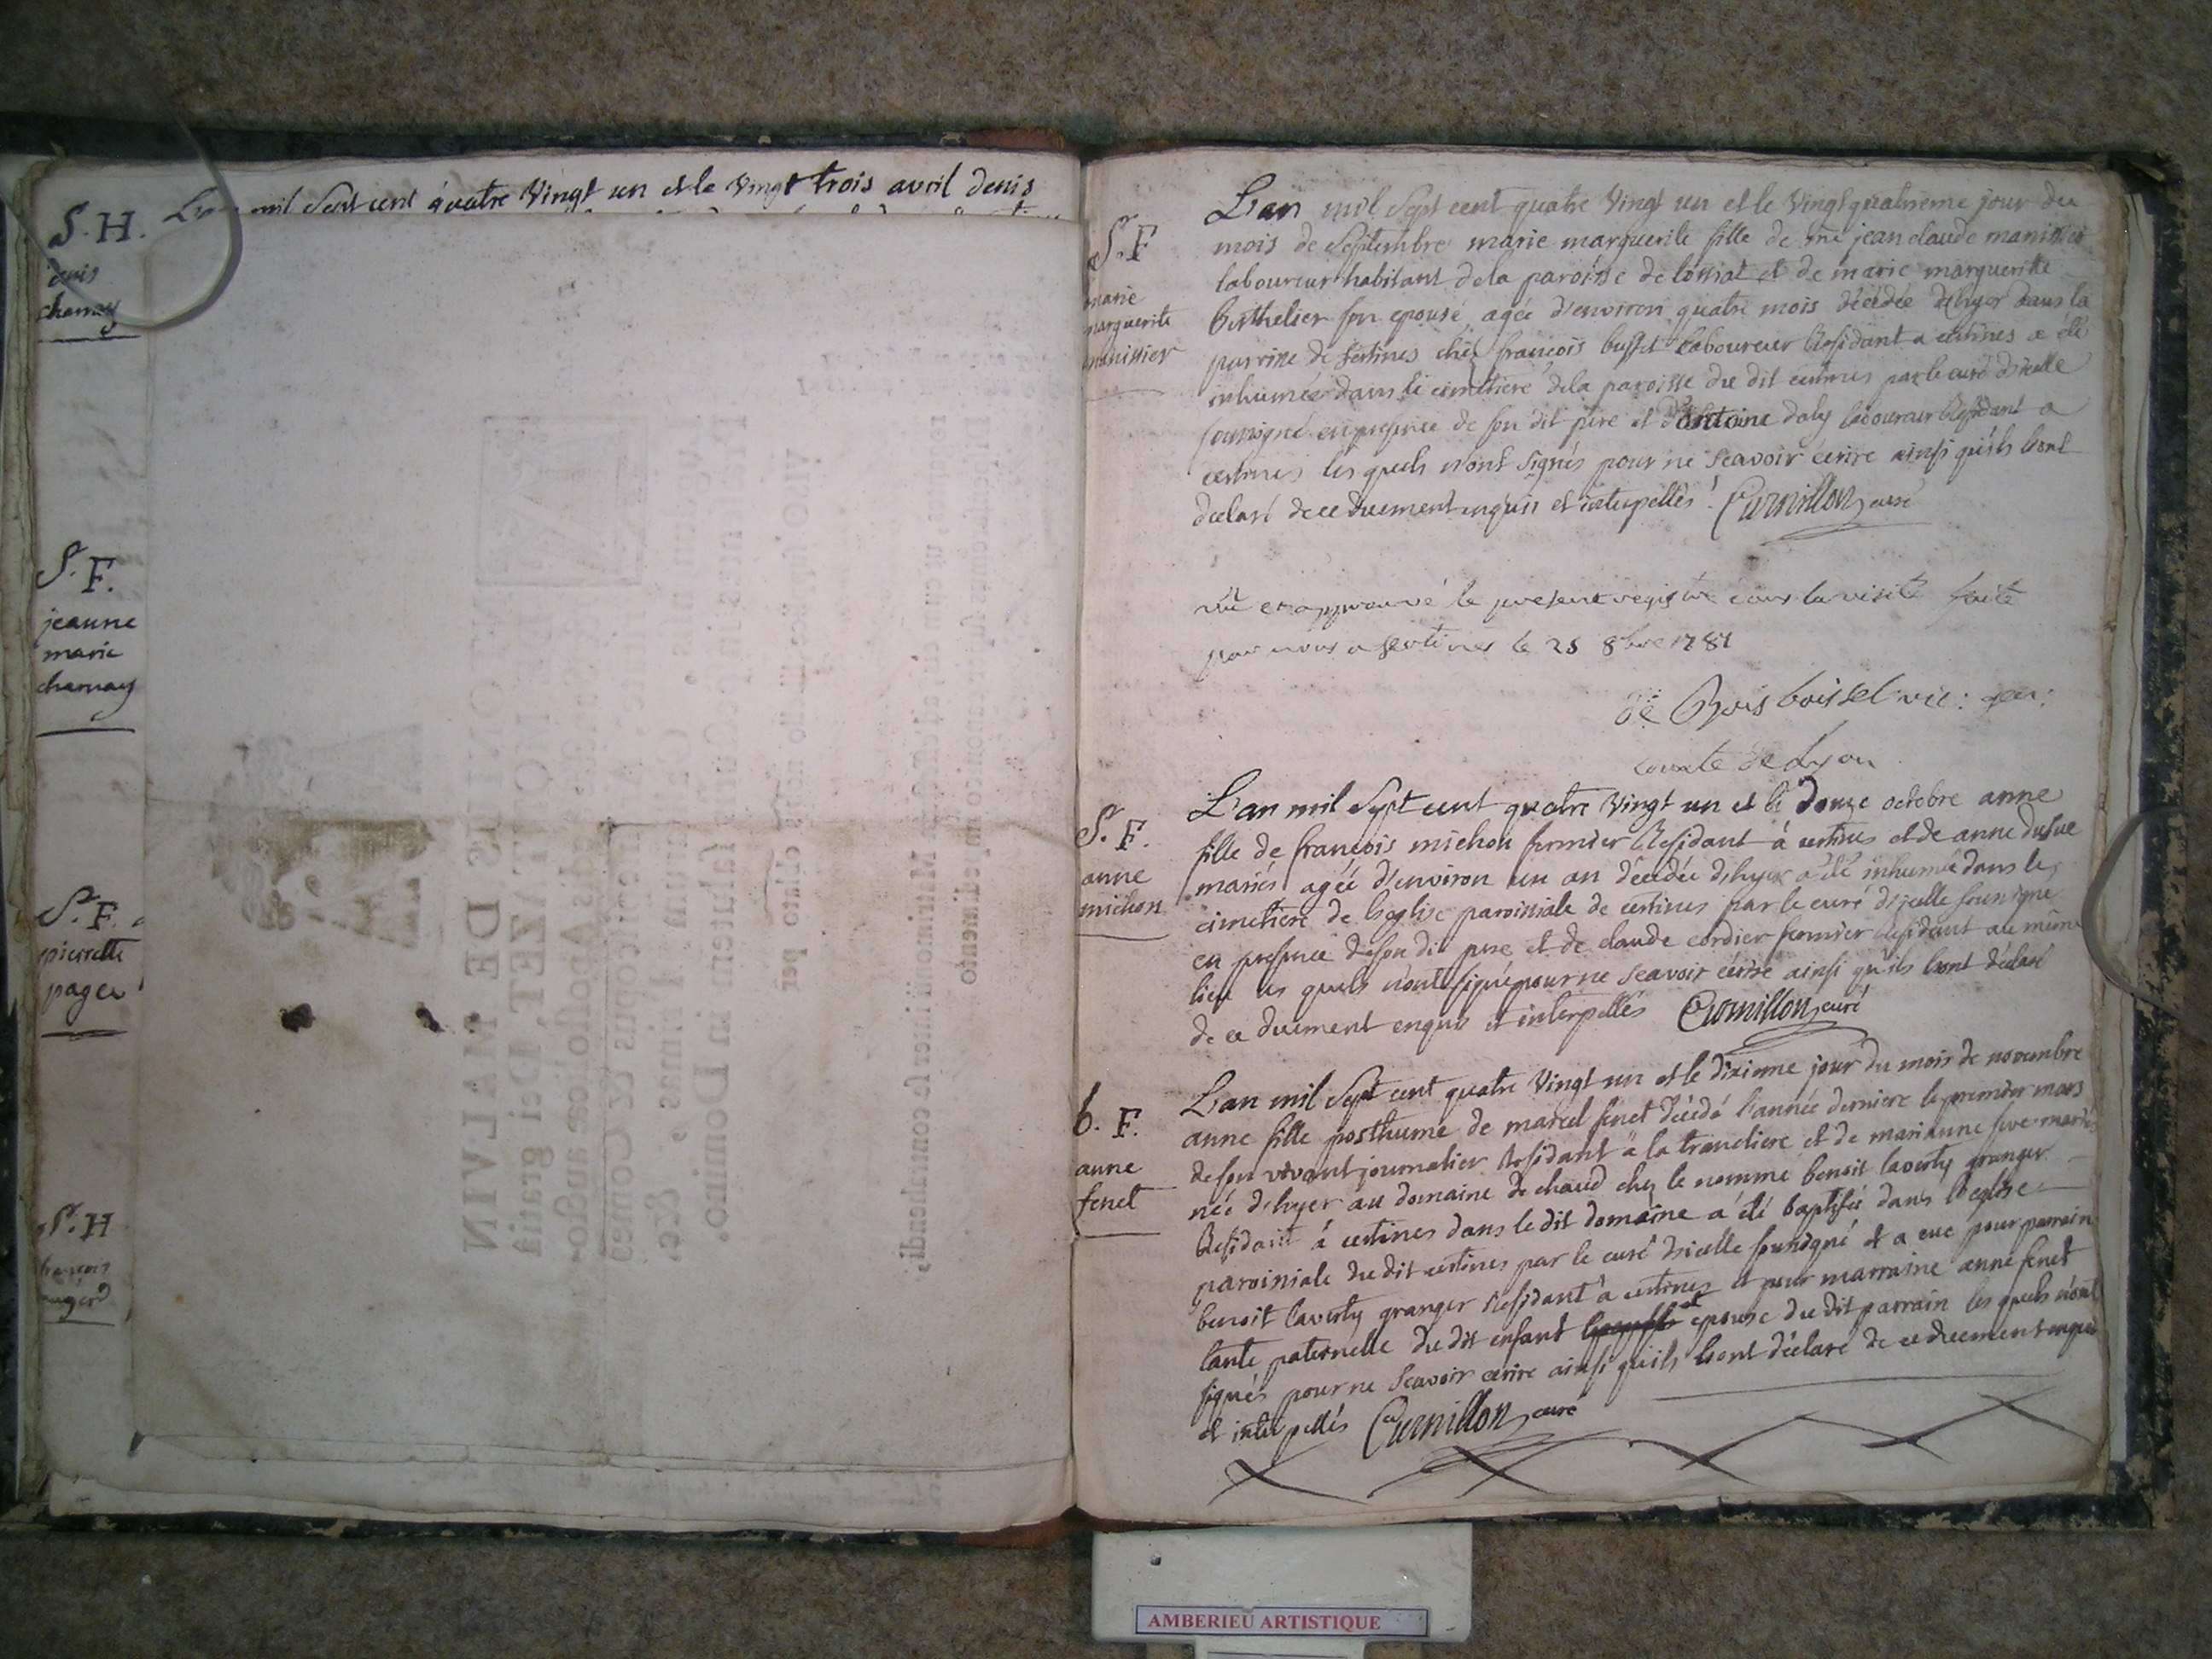 S. H.
denis
charnay
L'an mil Sept cent quatre Vingt un et le Vingt trois avril denis
S. F.
jeanne
marie
charnay
S. F.
pierrette
pages
S. H
françois
S. F
marie
marguerite
manissier
L'an mil Sept cent quatre Vingt un et le Vingt quatrieme jour du
mois de Septembre marie marguerite fille de me jean claude manissier
laboureur habitant de la paroisse de lossiat et de marie marguerite
berthelier son epouse agée d'environ quatre mois décédée dehyer dans la
parroise de sertines chéz francois buffet Laboureur Residant a certines a été
inhumée dans le cimetiere de la paroisse du dit certines par le curé d'icelle
soussigné en presence de son dit père et d'antoine daly laboureur Residant a
certines les quels n'ont signés pour ne Scavoir écrire ainsi qu'ils l'ont
déclaré de ce duement enquis et interpellès! Curnillon curé
vû et approuvé le present registre dans la visite faite
par nous a sertines le 25 8bre 1781
de Boisboissel vic: gen:
comte de Lyon
S. F.
anne
michon
L'an mil Sept cent quatre Vingt un et le douze octobre anne
fille de francois michon fermier Residant à certines et de anne dufue
mariés agée d'environ un an décédée d'hyer a été inhumée dans le
cimetiere de l'eglise paroissiale de certines par le curé d'icelle soussigné
en presence de son dit pere et de claude cordier fermier Residant au même
lieu les quels n'ont signé pour ne Scavoir écrire ainsi qu'ils l'ont déclaré
de ce duement enquis et interpellés Curnillon curé
b. F.
anne
fenet
L'an mil Sept cent quatre Vingt un et le dixieme jour du mois de novembre
anne fille posthume de marcel fenet décédé l'année derniere le premier mars
de son vivant journalier Residant à la trancliere et de marianne five mariés
née d'hyer au domaine de chaud chez le nommé benoit laverty granger
Residant à certines dans le dit domaine a été baptisée dans l'eglise
paroissiale du dit certines par le curé d'icelle soussigné et a eue pour parrain
benoit laverty granger Residant à certines et pour marraine anne fenet
tante paternelle du dit enfant et epouse du dit parrain les quels n'ont
signés pour ne Scavoir écrire ainsi qu'ils l'ont déclaré de ce duement enquis
et interpellés Curnillon curé
AMBERIEU ARTISTIQUE